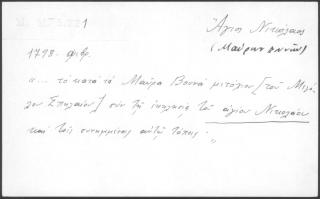 1
Ἅγιος Νικόλαος
(Μαύρων Βουνῶν)
1798. φεβρ.
"... τὸ κατὰ τὰ Μαῦρα Βουνὰ μετόχιον [τοῦ Μεγά-
λου Σπηλαίου] σὺν τῇ ἐκκλησίᾳ τοῦ ἁγίου Νικολάου
καὶ τοῖς συνημμένοις αὐτῷ τόποις."